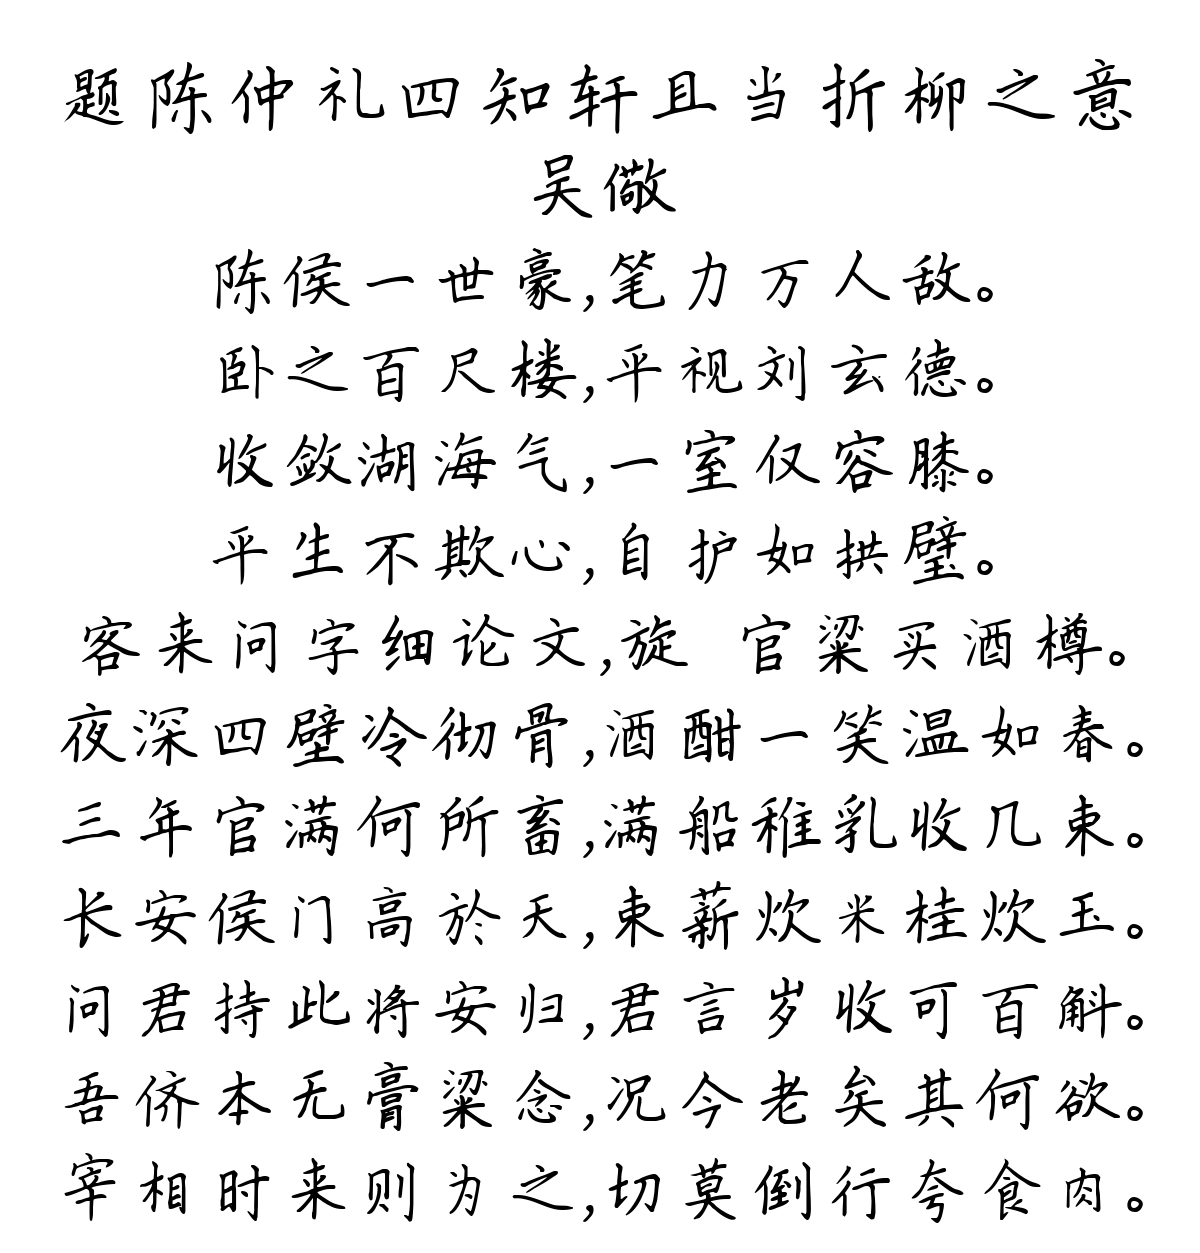 题陈仲礼四知轩且当折柳之意
吴儆
陈侯一世豪,笔力万人敌。
卧之百尺楼,平视刘玄德。
收敛湖海气,一室仅容膝。
平生不欺心,自护如拱璧。
客来问字细论文,旋 官粱买酒樽。
夜深四壁冷彻骨,酒酣一笑温如春。
三年官满何所畜,满船稚乳收几束。
长安侯门高於天,束薪炊米桂炊玉。
问君持此将安归,君言岁收可百斛。
吾侪本无膏粱念,况今老矣其何欲。
宰相时来则为之,切莫倒行夸食肉。